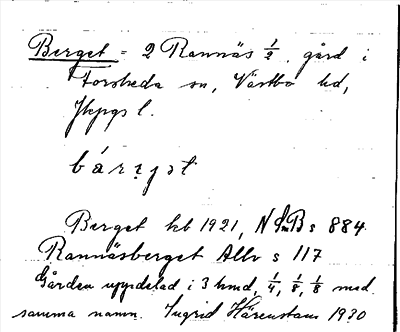 Berget = 2 Rannäs 1/2, gård i
Forsheda sn, Västbo hd,
Jkpgs l.
bárɪjət
Berget kb 1921, NSmB s 884
Rannäsberget Allv s 117
Gården uppdelad i 3 hmd, 1/4, 1/8, 1/8 med
samma namn. Ingrid Härenstam 1930